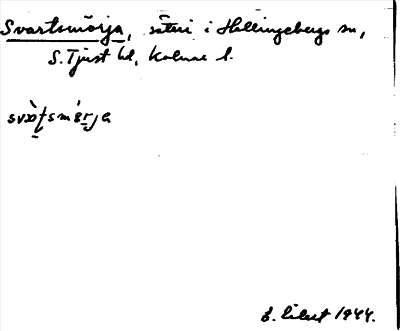 Svartsmörja, säteri i Hallingebergs sn,
S. Tjust hd, Kalmar l.
svàṭsmö́rja
1944.